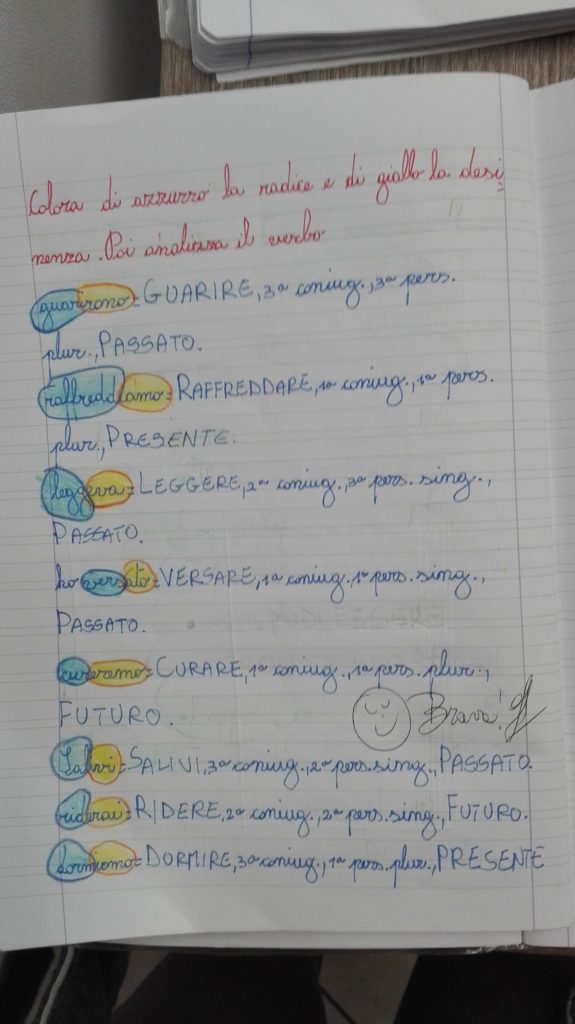 Colora di azzurro la radice e di giallo la desi
nenza. Poi analizza il verbo.
guarirono = GUARIRE, 3ª coniug., 3ª pers.
plur., PASSATO.
raffreddiamo = RAFFREDDARE, 1ª coniug., 1ª pers.
plur., PRESENTE.
leggeva = LEGGERE, 2ª coniug., 3ª pers. sing.,
PASSATO.
ho versato = VERSARE, 1ª coniug. 1ª pers. sing.,
PASSATO.
cureremo = CURARE, 1ª coniug., 1ª pers. plur.,
FUTURO.
Brava!
Salivi = SALIVI, 3ª coniug., 2ª pers. sing., PASSATO.
riderai = RIDERE, 2ª coniug., 2ª pers. sing., FUTURO.
dormiamo = DORMIRE, 3ª coniug., 1ª pers. plur., PRESENTE